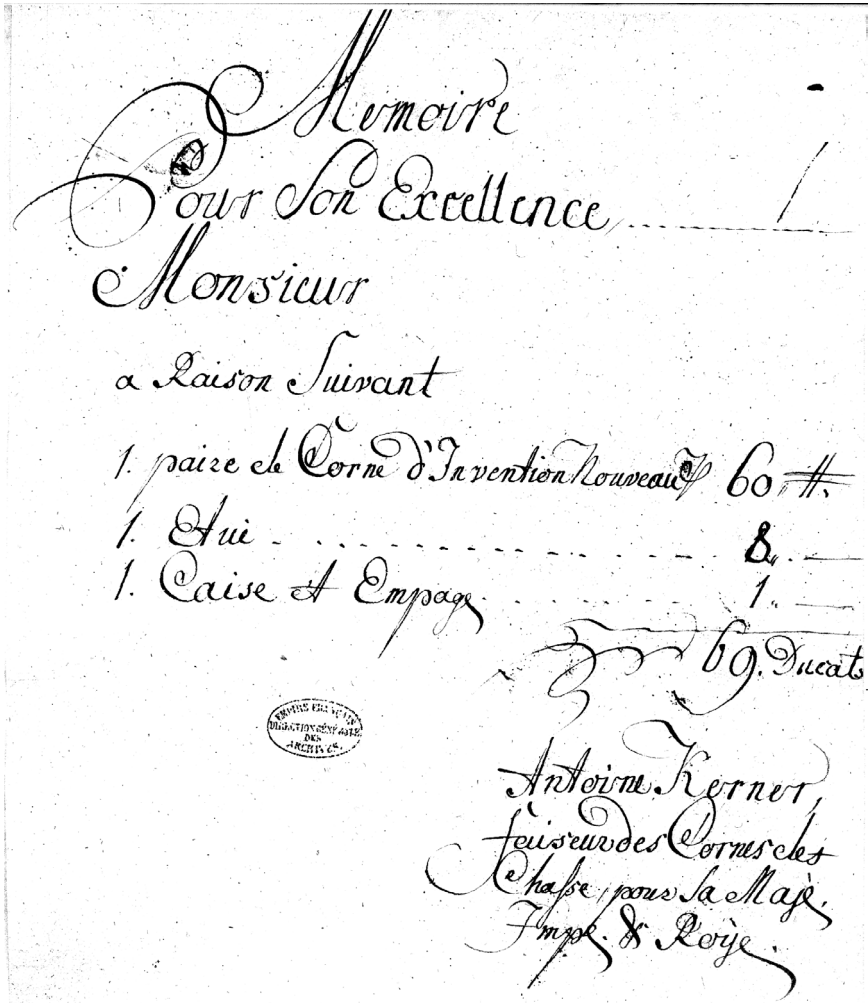 Memoire
Pour Son Excellence
Monsieur
a Raison Suivant
1. paire de Corne d'Invention Nouveau 60 #.
1. Etui 8.
1. Caise et Empage 1.
69. Ducats
EMPIRE FRANÇAIS
DIRECTION GÉNÉRALE
DES
ARCHIVES
Antoine Kerner,
faiseur des Cornes des
Chasse, pour Sa Maje.
Impe. & Roÿe.